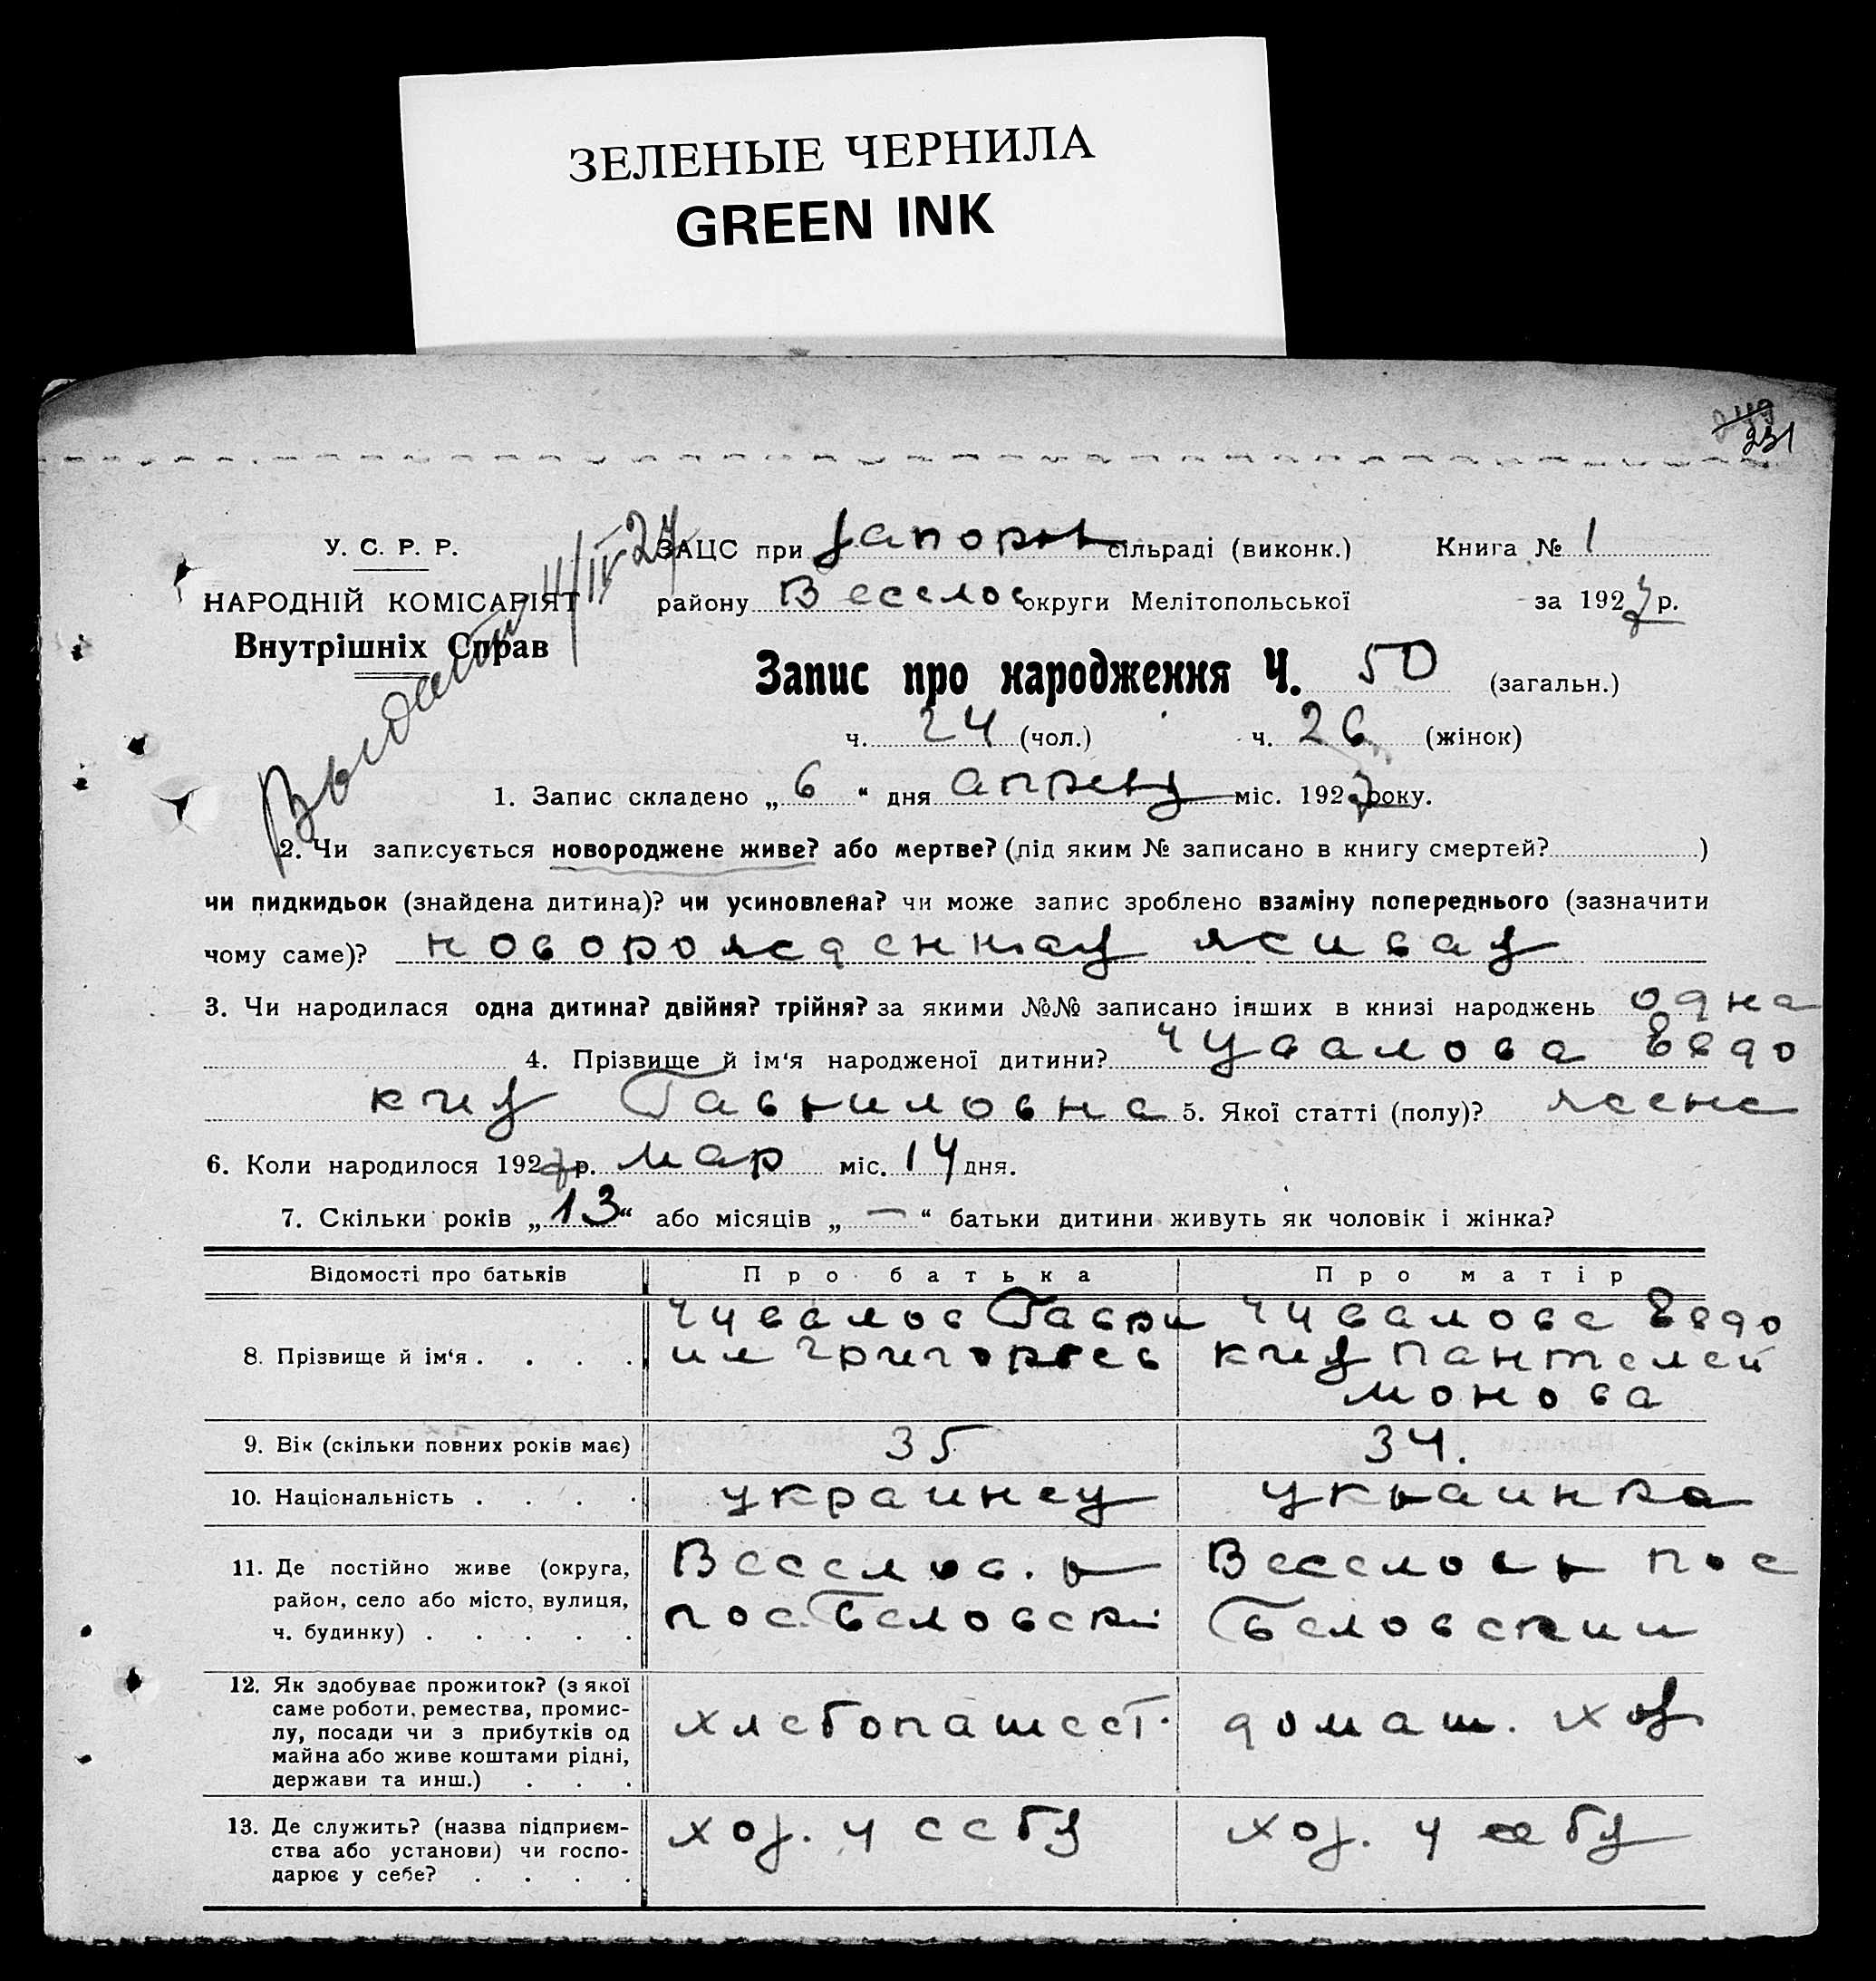 ЗЕЛЕНЫЕ ЧЕРНИЛА
GREEN INK
249
231
У. С. Р. Р.
НАРОДНІЙ КОМІСАРІЯТ
Внутрішніх Справ
11/IV 27
ЗАЦС при Запорож сільраді (виконк.) Книга № 1
району Веселов округи Мелітопольської за 1927 р.
Запис про народження Ч. 50 (загальн.)
ч. 24 (чол.) ч. 26 (жінок)
1. Запис складено „ 6 “ дня апреля міс. 1927 року.
2. Чи записується новороджене живе? або мертве? (під яким № записано в книгу смертей? )
чи пидкидьок (знайдена дитина)? чи усиновлена? чи може запис зроблено взаміну попереднього (зазначити
чому саме)? новорожденная живая
3. Чи народилася одна дитина? двійня? трійня? за якими №№ записано інших в книзі народжень одна
4. Прізвище й ім‘я народженої дитини? Чувалова Евдо
кия Гавриловна 5. Якої статті (полу)? жене
6. Коли народилося 1927 р. мар міс. 14 дня.
7. Скільки років „ 13 “ або місяців „ — “ батьки дитини живуть як чоловік і жінка?
Відомості про батьків Про батька Про матір
8. Прізвище й ім‘я . . . . Чувалов Гаври Чувалова Евдо
ил Григорьев кия Пантелей
монова
9. Вік (скільки повних років має) 35 34.
10. Національність . . . . украинец украинка
11. Де постійно живе (округа, район, село або місто, вулиця, ч. будинку) . . . . . Веселов. р Веселов р пос
пос Беловски Беловскии
12. Як здобуває прожиток? (з якої
саме роботи, ремества, промис-
лу, посади чи з прибутків од
майна або живе коштами рідні,
держави та инш.) . . . хлебопашест. домаш. хоз
13. Де служить? (назва підприєм-
ства або установи) чи госпо-
дарює у себе? . . . . хоз. у себя хоз. у себя